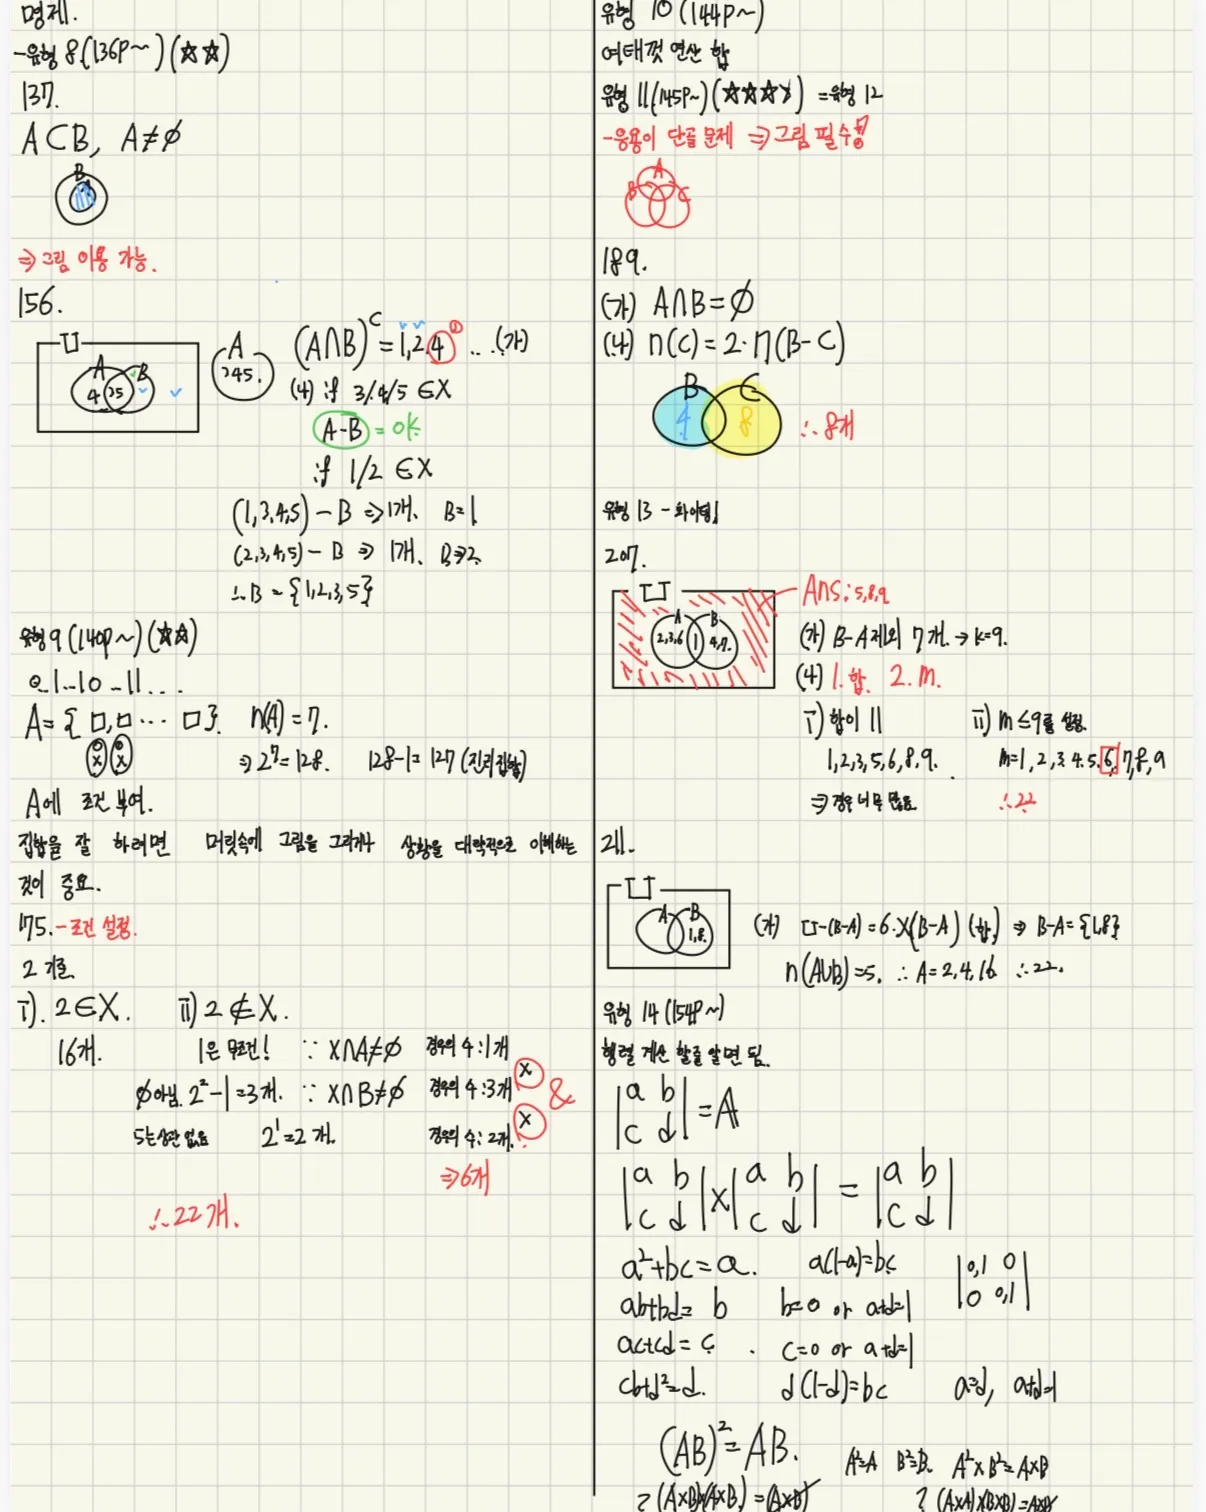 명제.
-유형 8.(136P~)(☆☆)
137.
A⊂B, A≠∅
B
A
⇒그림 이용 가능.
156.
U
A B
4 35
A
345.
(A∩B)^C = 1,2,4 ① ... (가)
(나) if 3/4/5 ∈X
A-B = ok
if 1/2 ∈X
(1,3,4,5) - B ⇒1개. B=1.
(2,3,4,5) - B ⇒ 1개. B⇒2.
∴B = {1,2,3,5}
유형 9 (140P~)(☆☆)
0_1_..10 _11...
A={ □,□... □}. n(A)=7.
⇒ 2^7=128. 128-1=127 (진리집합)
A에 조건 부여.
집합을 잘 하려면 머릿속에 그림을 그리거나 상황을 대략적으로 이해하는
것이 중요.
175. -조건 설정.
2 기준.
i). 2∈X. ii) 2∉X.
16개. 1은 무조건! ∵ X∩A≠∅ 경우의 수 : 1개
∅아님. 2²-1=3개. ∵ X∩B≠∅ 경우의 수 : 3개 x &
5는 상관 없음 2^1=2개. 경우의 수 : 2개. x
⇒6개
∴22개.
유형 10 (144P~)
여태껏 연산 합
유형 11(145P~)(☆☆☆☆) =유형 12
-응용이 단골 문제 ⇒그림 필수!
A
B C
189.
(가) A∩B=∅
(나) n(C)=2·n(B-C)
B C
4 8
∴8개
유형 13 - 화이팅!
207.
U
A B
2,3,6 1 4,7.
Ans: 5,8,9
(가) B-A 제외 7개. → k=9.
(나) 1.합. 2. m.
i) 합이 11 ii) m≤9를 설정.
1,2,3,5,6,8,9. m=1,2,3,4,5,6,7,8,9
⇒경우 너무 많음. ∴22
211.
U
A B
1,8.
(가) U-(B-A)=6·X(B-A) (합) ⇒ B-A={1,8}
n(A∪B)=5. ∴A=2,4,16 ∴22.
유형 14 (154P~)
행렬 계산 할줄 알면 됨.
|a b
c d| = A
|a b
c d| x |a b
c d| = |a b
c d|
a²+bc=a. a(1-a)=bc |0,1 0
0 0,1|
ab+bd= b b=0 or a+d=1
ac+cd= c . c=0 or a+d=1
cb+d²=d. d(1-d)=bc a=d, a+d=1
(AB)²=AB. A²=A B²=B. A²×B²=A×B
? (A×B)(A×B)=(A×B) ? (A×A)×(B×B)=A×B